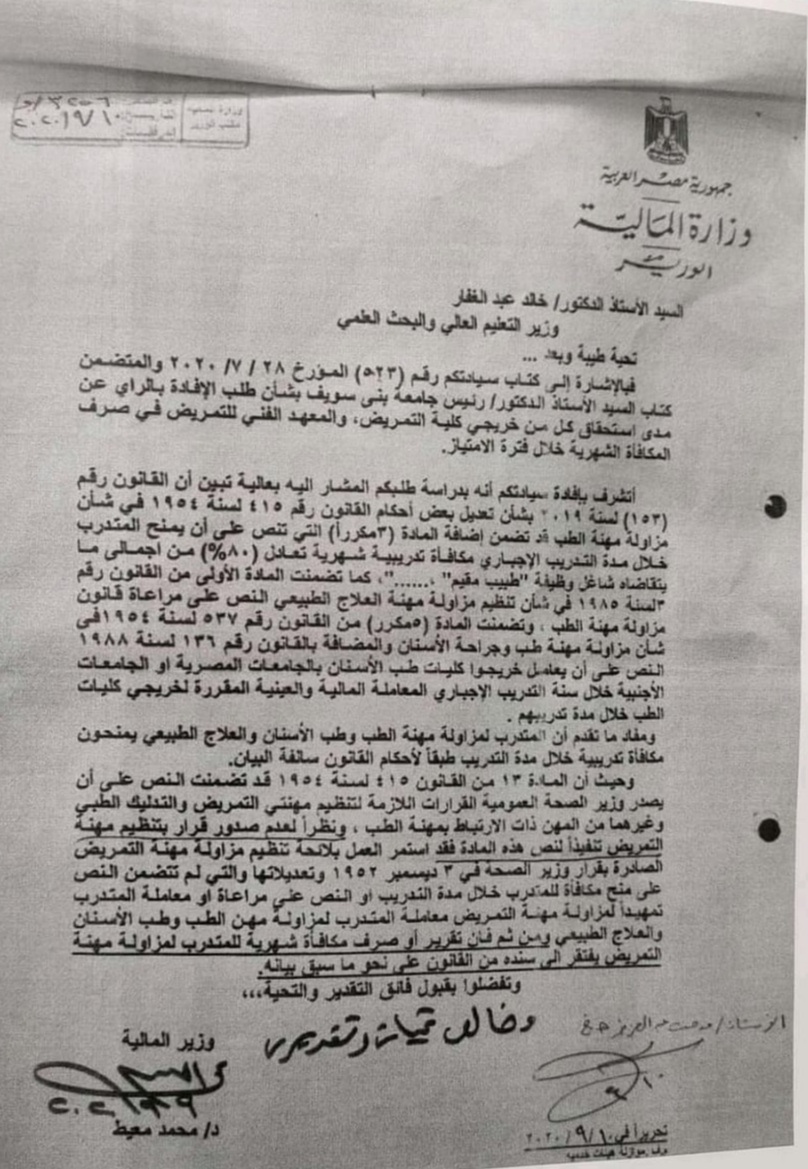 جمهورية مصر العربية
وزارة المالية
الوزير
السيد الأستاذ الدكتور/ خالد عبد الغفار
وزير التعليم العالي والبحث العلمي
تحية طيبة وبعد ...
فبالإشارة إلى كتاب سيادتكم رقم (٥٢٣) المؤرخ ٢٨ / ٧/ ٢٠٢٠ والمتضمن
كتاب السيد الأستاذ الدكتور/ رئيس جامعة بنى سويف بشأن طلب الإفادة بالراي عن
مدى استحقاق كل من خريجي كلية التمريض، والمعهد الفني للتمريض في صرف
المكافأة الشهرية خلال فترة الامتياز.
أتشرف بإفادة سيادتكم أنه بدراسة طلبكم المشار اليه بعالية تبين أن القانون رقم
(١٥٣) لسنة ٢٠١٩ بشأن تعديل بعض أحكام القانون رقم ٤١٥ لسنة ١٩٥٤ في شأن
مزاولة مهنة الطب قد تضمن إضافة المادة (٣مكرراً) التي تنص على أن يمنح المتدرب
خلال مدة التدريب الإجباري مكافأة تدريبية شهرية تعادل (٨٠%) من اجمالى ما
يتقاضاه شاغل وظيفة "طبيب مقيم" ،......"، كما تضمنت المادة الأولى من القانون رقم
٣لسنة ١٩٨٥ في شأن تنظيم مزاولة مهنة العلاج الطبيعي النص على مراعاة قانون
مزاولة مهنة الطب ، وتضمنت المادة (٥مكرر) من القانون رقم ٥٣٧ لسنة ١٩٥٤فى
شأن مزاولة مهنة طب وجراحة الأسنان والمضافة بالقانون رقم ١٣٦ لسنة ١٩٨٨
النص على أن يعامل خريجوا كليات طب الأسنان بالجامعات المصرية او الجامعات
الأجنبية خلال سنة التدريب الإجباري المعاملة المالية والعينية المقررة لخريجي كليات
الطب خلال مدة تدريبهم .
ومفاد ما تقدم أن المتدرب لمزاولة مهنة الطب وطب الأسنان والعلاج الطبيعي يمنحون
مكافأة تدريبية خلال مدة التدريب طبقاً لأحكام القانون سالفة البيان.
وحيث أن المادة ١٣ من القانون ٤١٥ لسنة ١٩٥٤ قد تضمنت النص على أن
يصدر وزير الصحة العمومية القرارات اللازمة لتنظيم مهنتي التمريض والتدليك الطبي
وغيرهما من المهن ذات الارتباط بمهنة الطب ، ونظراً لعدم صدور قرار بتنظيم مهنة
التمريض تنفيذاً لنص هذه المادة فقد استمر العمل بلائحة تنظيم مزاولة مهنة التمريض
الصادرة بقرار وزير الصحة في ٣ ديسمبر ١٩٥٢ وتعديلاتها والتي لم تتضمن النص
على منح مكافأة للمتدرب خلال مدة التدريب او النص على مراعاة او معاملة المتدرب
تمهيداً لمزاولة مهنة التمريض معاملة المتدرب لمزاولة مهن الطب وطب الأسنان
والعلاج الطبيعي ومن ثم فان تقرير أو صرف مكافأة شهرية للمتدرب لمزاولة مهنة
التمريض يفتقر الى سنده من القانون على نحو ما سبق بيانه.
وتفضلوا بقبول فائق التقدير والتحية،،،
وخالص تحياتى وتقديرى
وزير المالية
د/ محمد معيط
تحريراً في ١٠/ ٩/ ٢٠٢٠